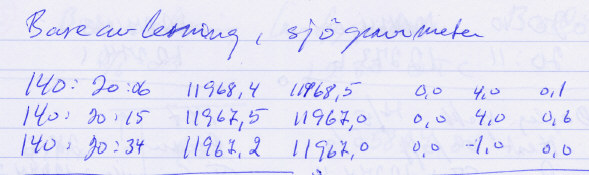 Base avlesning, sjögravimeter
140: 20:06 11968,4 11968,5 0,0 4,0 0,1
140: 20:15 11967,5 11967,0 0,0 4,0 0,6
140: 20:34 11967,2 11967,0 0,0 -1,0 0,0